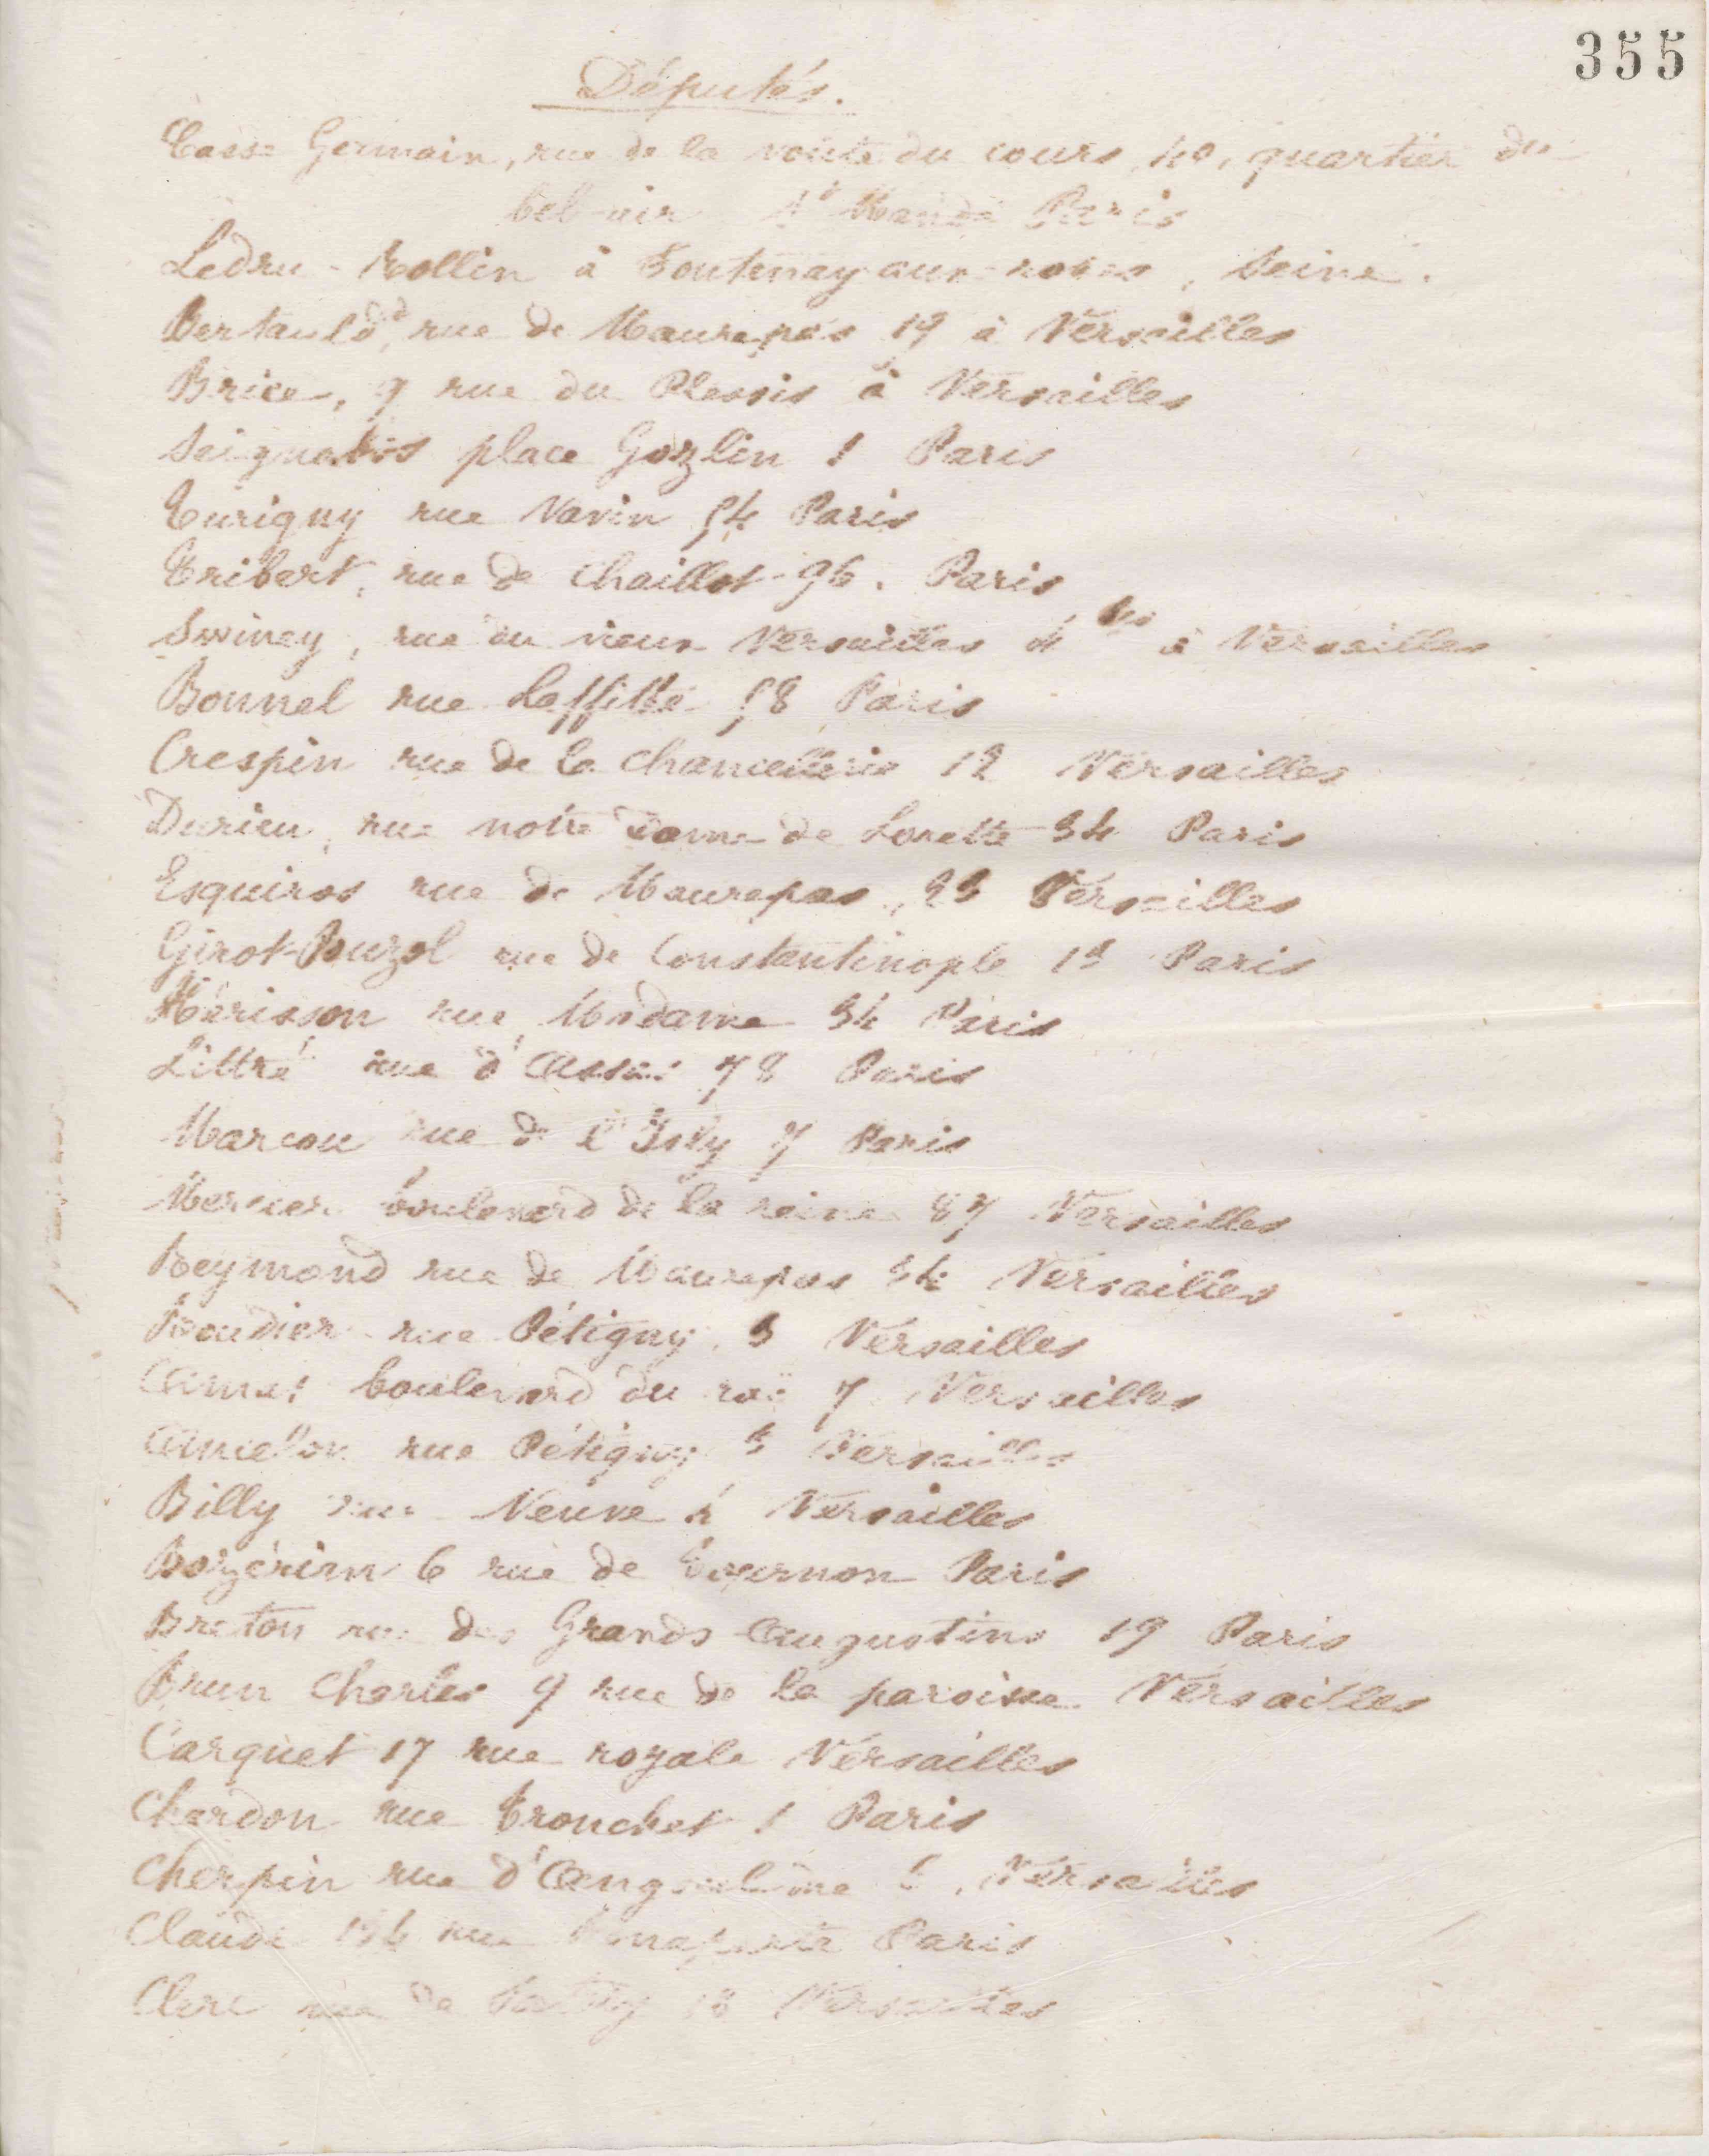 355
Députés.
Casse Germain, rue de la voûte du cours, 40, quartier du
bel-air St Mandé Paris
Ledru-Rollin à Fontenay aux roses, Seine.
Bertauld, rue de Maurepas 19 à Versailles
Brice, 9 rue du Plessis à Versailles
Seignobos place Gozlin 1 Paris
Turigny rue Vavin 54 Paris
Tribert, rue de Chaillot 96. Paris
Swiney, rue du vieux Versailles 4 bis à Versailles
Bonnel rue Laffitte 58 Paris
Crespin rue de la chancellerie 12 Versailles
Durieu, rue notre Dame de Lorette 34 Paris
Esquiros rue de Maurepas, 23 Versailles
Girot-Pouzol rue de Constantinople 13 Paris
Hérisson rue Madame 34 Paris
Littré rue d'Assas 78 Paris
Marcou rue de l'Isly 7 Paris
Mercier boulevard de la reine 87 Versailles
Reymond rue de Maurepas 34 Versailles
Roudier rue Pétigny, 3 Versailles
Amat boulevard du roi 7 Versailles
Ancelon rue Pétigny Versailles
Billy rue Neuve 4 Versailles
Bozérian 6 rue de Tournon Paris
Breton rue des Grands Augustins 19 Paris
Brun Charles 9 rue de la paroisse Versailles
Carquet 17 rue royale Versailles
Chardon rue Tronchet 1 Paris
Cherpin rue d'Angoulême Versailles
Claude rue Bonaparte Paris
Clerc rue de Satory 18 Versailles